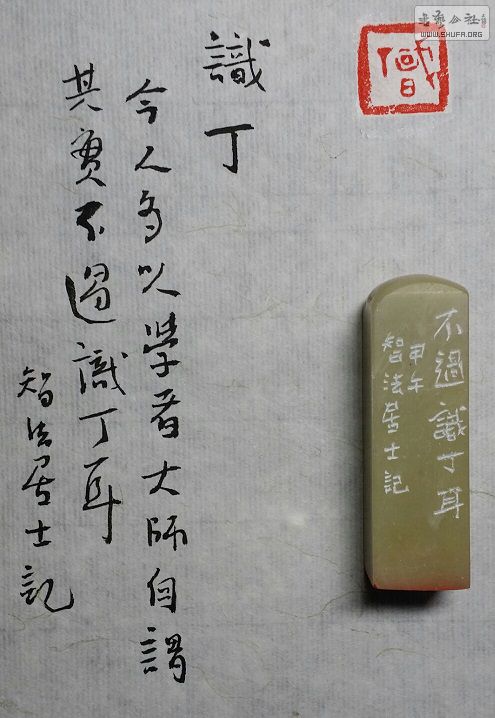 識丁
今人多以學者大師自謂
其實不過識丁耳
智法居士記
不過識丁耳
甲午
智法居士記
書法公社
WWW.SHUFA.ORG